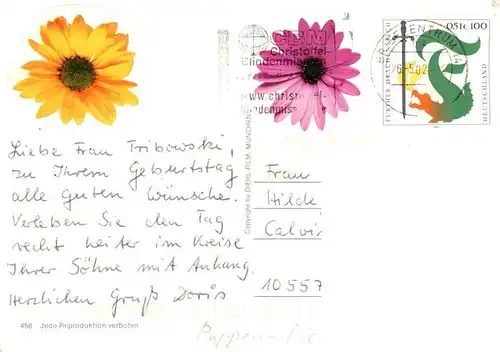 CBM
Christoffel-
Blindenmission
www.christoffel-
blindenmiss
FURTHER DRACHENSTICH
0,51€ 100
DEUTSCHLAND
Liebe Frau Tribowski,
zu Ihrem Geburtstag
alle guten Wünsche.
Verleben Sie den Tag
recht heiter im Kreise
Ihrer Söhne mit Anhang.
Herzlichen Gruß Doris
458 Jede Reproduktion verboten
Copyright by DIEHL-FILM, MÜNCHEN
Frau
Hilde
Calvi
10557